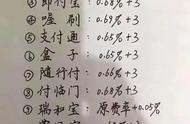 ③ 即付宝：0.68%+3
④ 喔刷：0.69%+3
⑤ 支付通：0.65%+3
⑥ 盒子：0.65%+3
⑦ 随行付：0.66%+3
⑧ 付临门：0.68%+3
⑨ 瑞和宝：原费率+0.05%